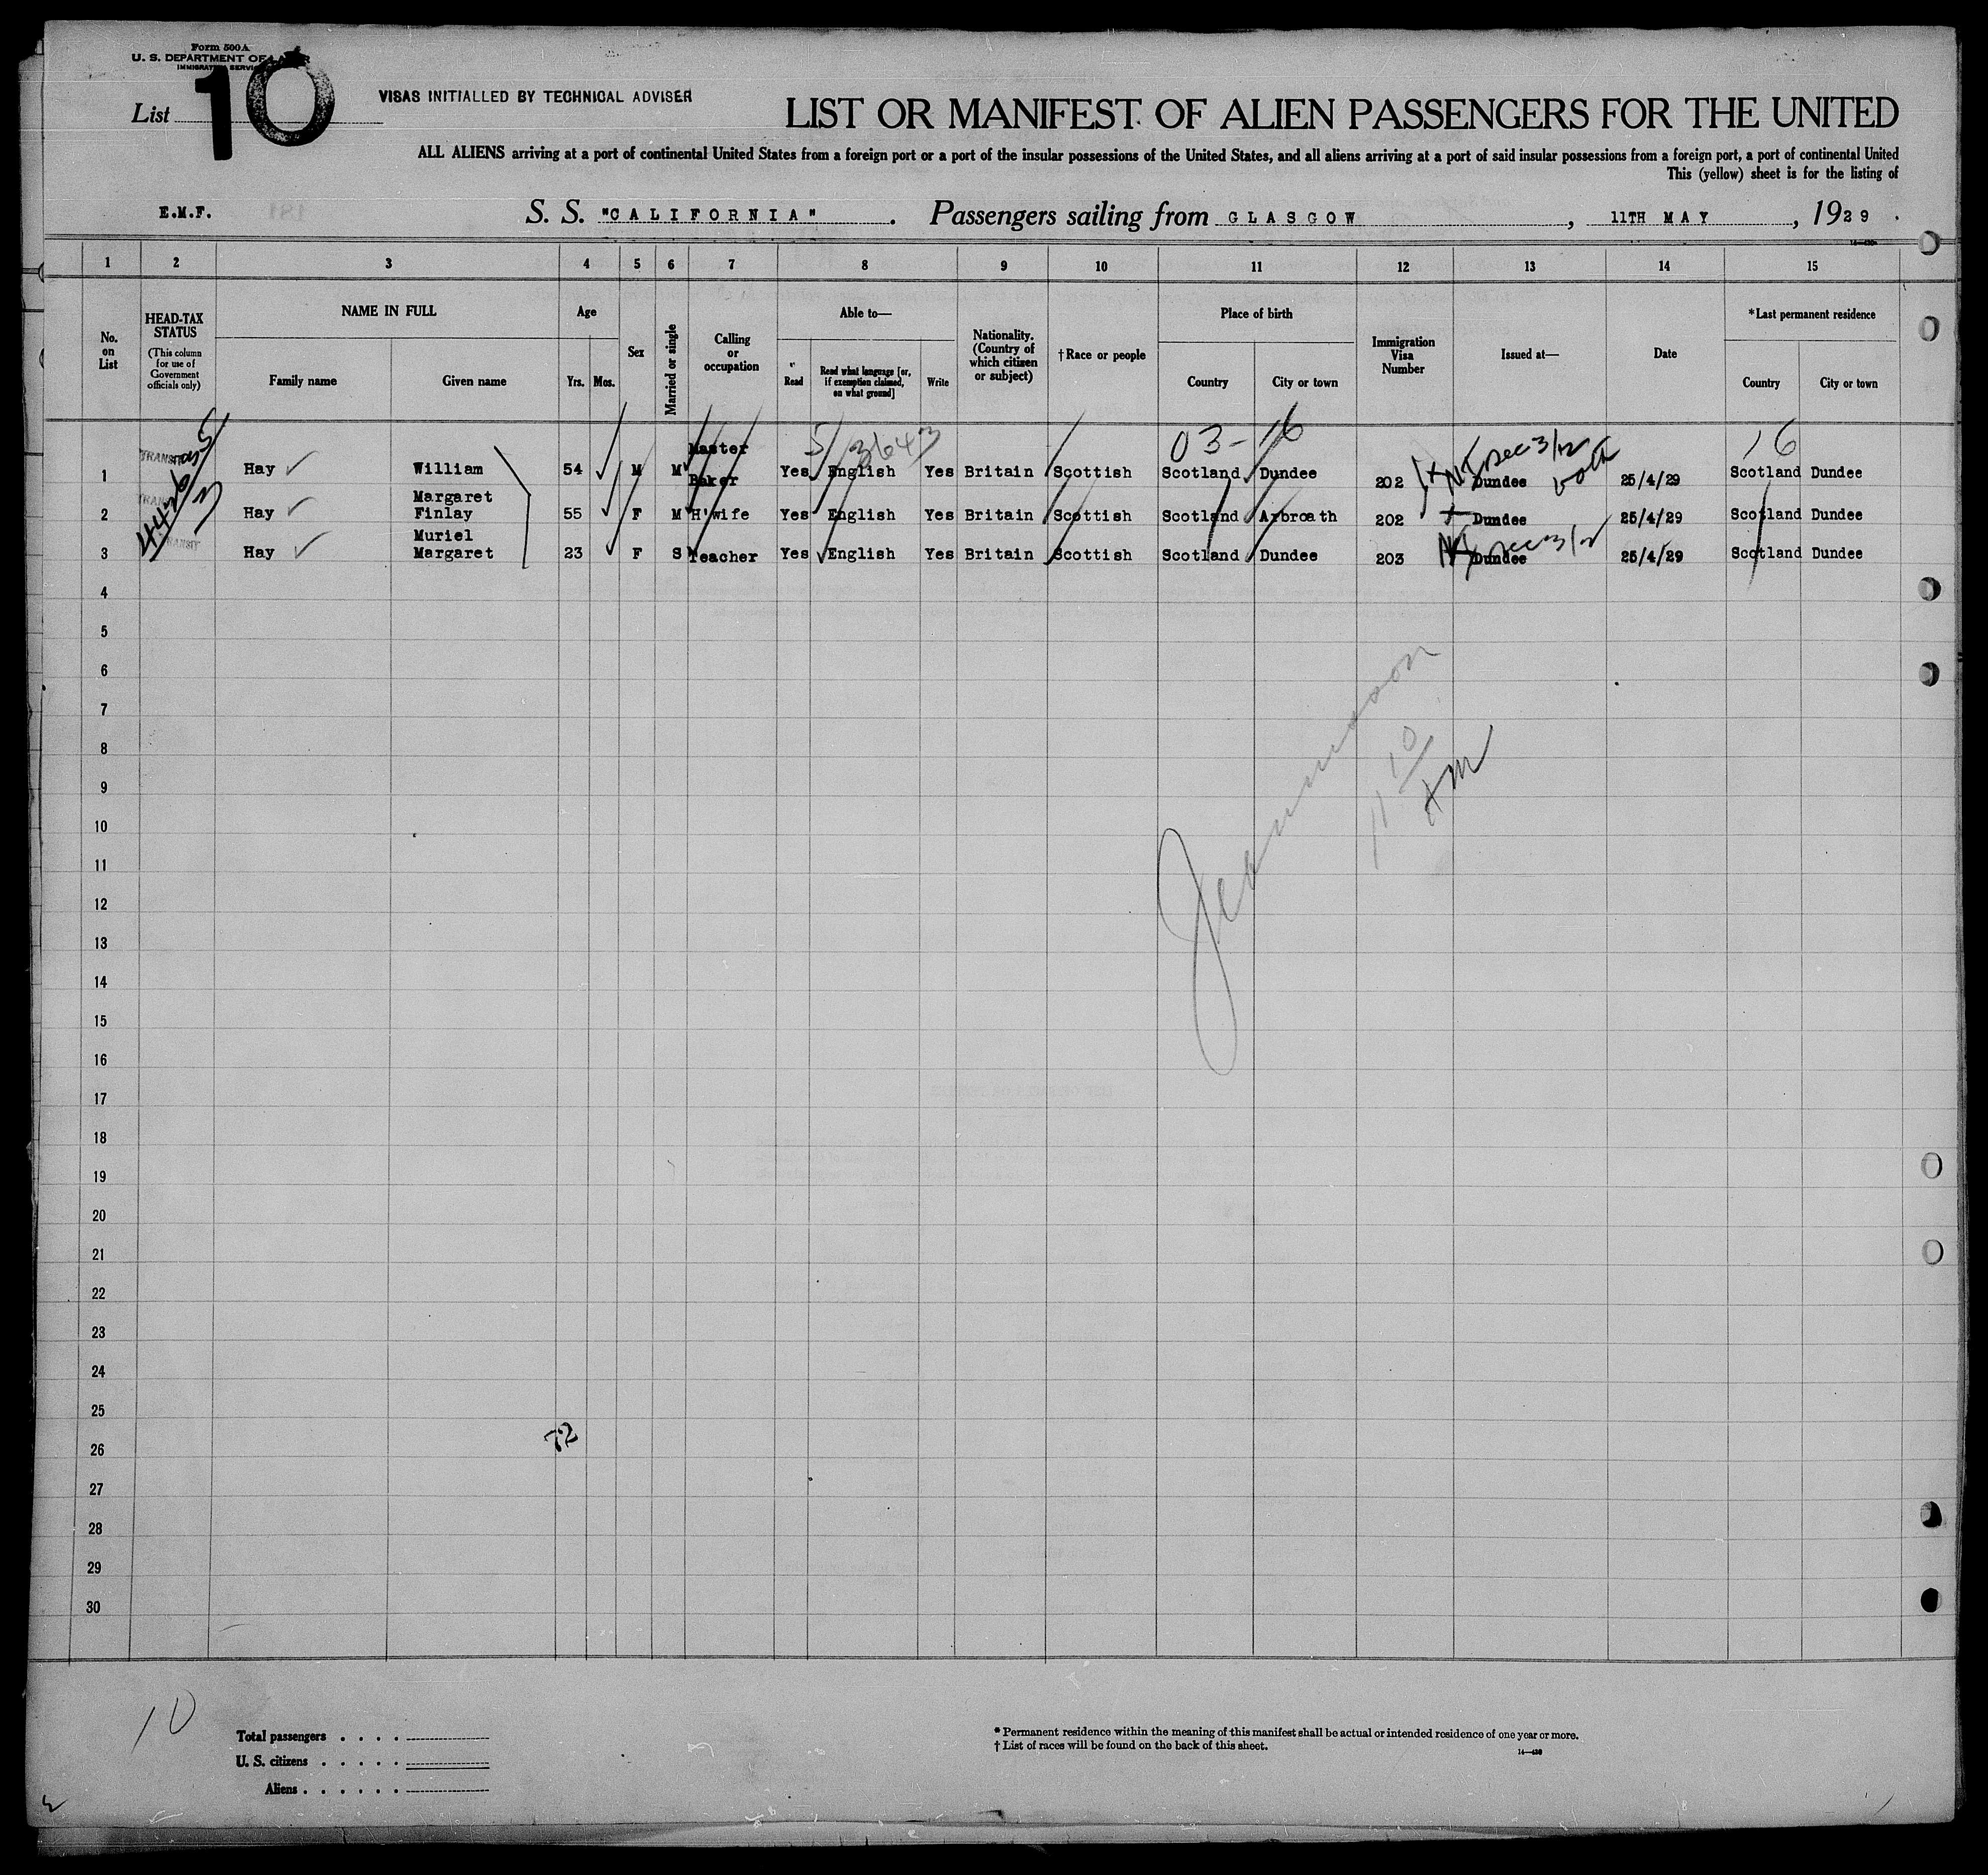 Form 500A
U. S. DEPARTMENT OF LABOR
IMMIGRATION SERVICE
List 10
VISAS INITIALLED BY TECHNICAL ADVISER
LIST OR MANIFEST OF ALIEN PASSENGERS FOR THE UNITED
ALL ALIENS arriving at a port of continental United States from a foreign port or a port of the insular possessions of the United States, and all aliens arriving at a port of said insular possessions from a foreign port, a port of continental United
This (yellow) sheet is for the listing of
E.M.F. S. S. "CALIFORNIA". Passengers sailing from GLASGOW, 11TH MAY, 1929.
1 2 3 4 5 6 7 8 9 10 11 12 13 14 15
No. on List
HEAD-TAX STATUS
(This column for use of Government officials only)
NAME IN FULL
Family name Given name
Age
Yrs. Mos.
Sex
Married or single
Calling or occupation
Able to—
Read
Read what language [or, if exemption claimed, on what ground]
Write
Nationality. (Country of which citizen or subject)
†Race or people
Place of birth
Country City or town
Immigration Visa Number
Issued at—
Date
*Last permanent residence
Country City or town
03-16 16
1 TRANSIT Hay William 54 M M Master Baker Yes English Yes Britain Scottish Scotland Dundee 202 Dundee 25/4/29 Scotland Dundee
2 Hay Margaret Finlay 55 F M H'wife Yes English Yes Britain Scottish Scotland Arbroath 202 Dundee 25/4/29 Scotland Dundee
3 TRANSIT Hay Muriel Margaret 23 F S Teacher Yes English Yes Britain Scottish Scotland Dundee 203 Dundee 25/4/29 Scotland Dundee
4
5
6
7
8
9
10
11
12
13
14
15
16
17
18
19
20
21
22
23
24
25
72
26
27
28
29
30
10
Total passengers . . . .
U. S. citizens . . . . .
Aliens . . . . . .
* Permanent residence within the meaning of this manifest shall be actual or intended residence of one year or more.
† List of races will be found on the back of this sheet.